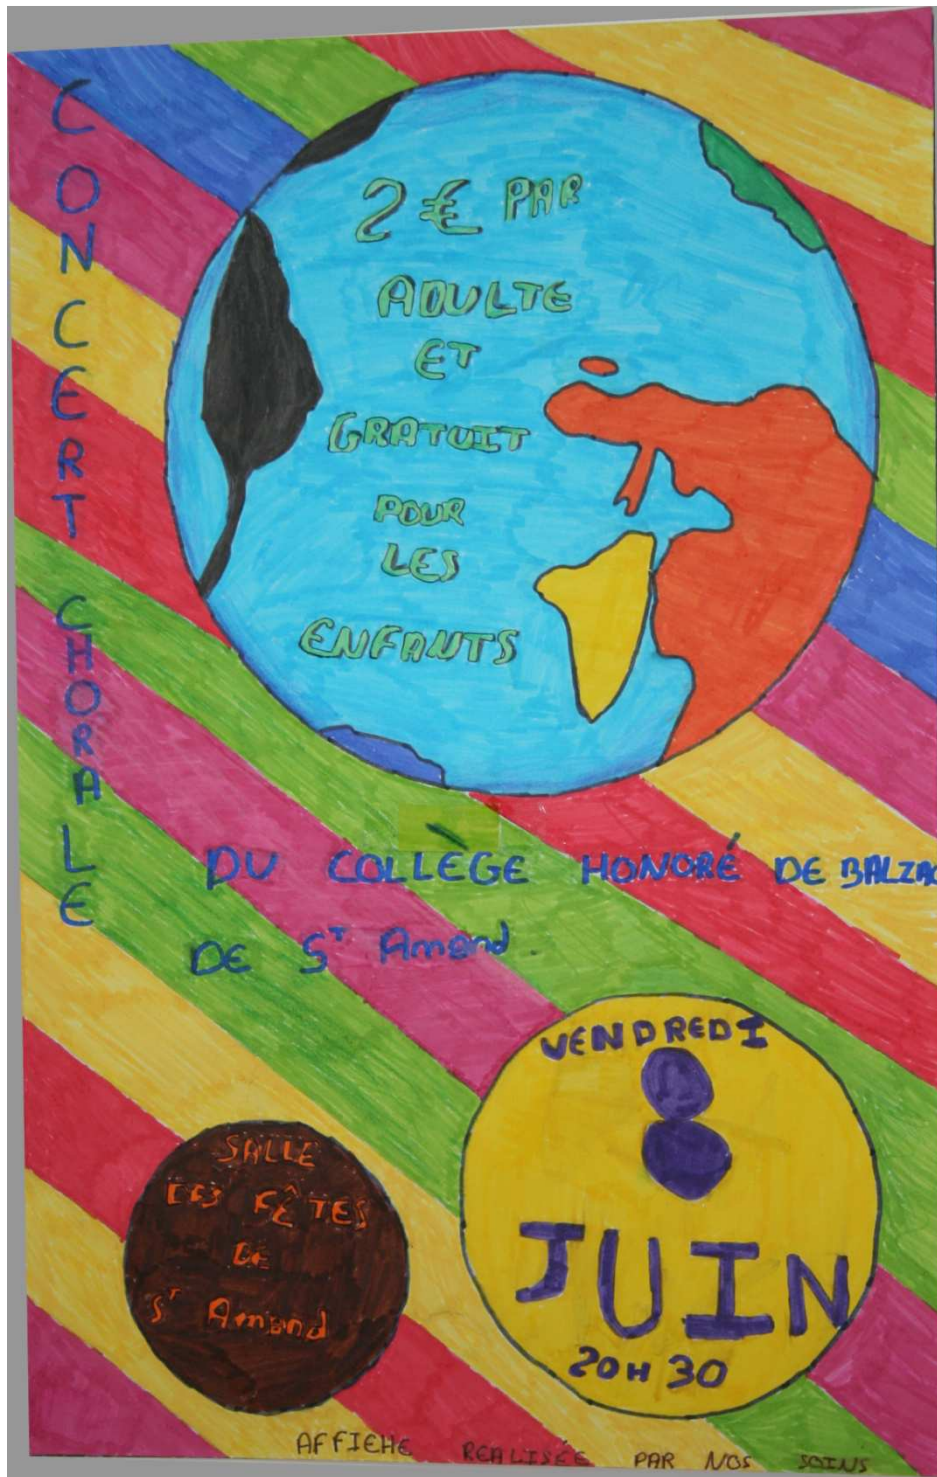 CONCERT CHORALE
2 € PAR
ADULTE
ET
GRATUIT
POUR
LES
ENFANTS
DU COLLÈGE HONORÉ DE BALZAC
DE Sᵀ Amand
VENDREDI
8
JUIN
20H30
SALLE
DES FÊTES
DE
Sᵀ Amand
AFFICHE REALISÉE PAR NOS SOINS